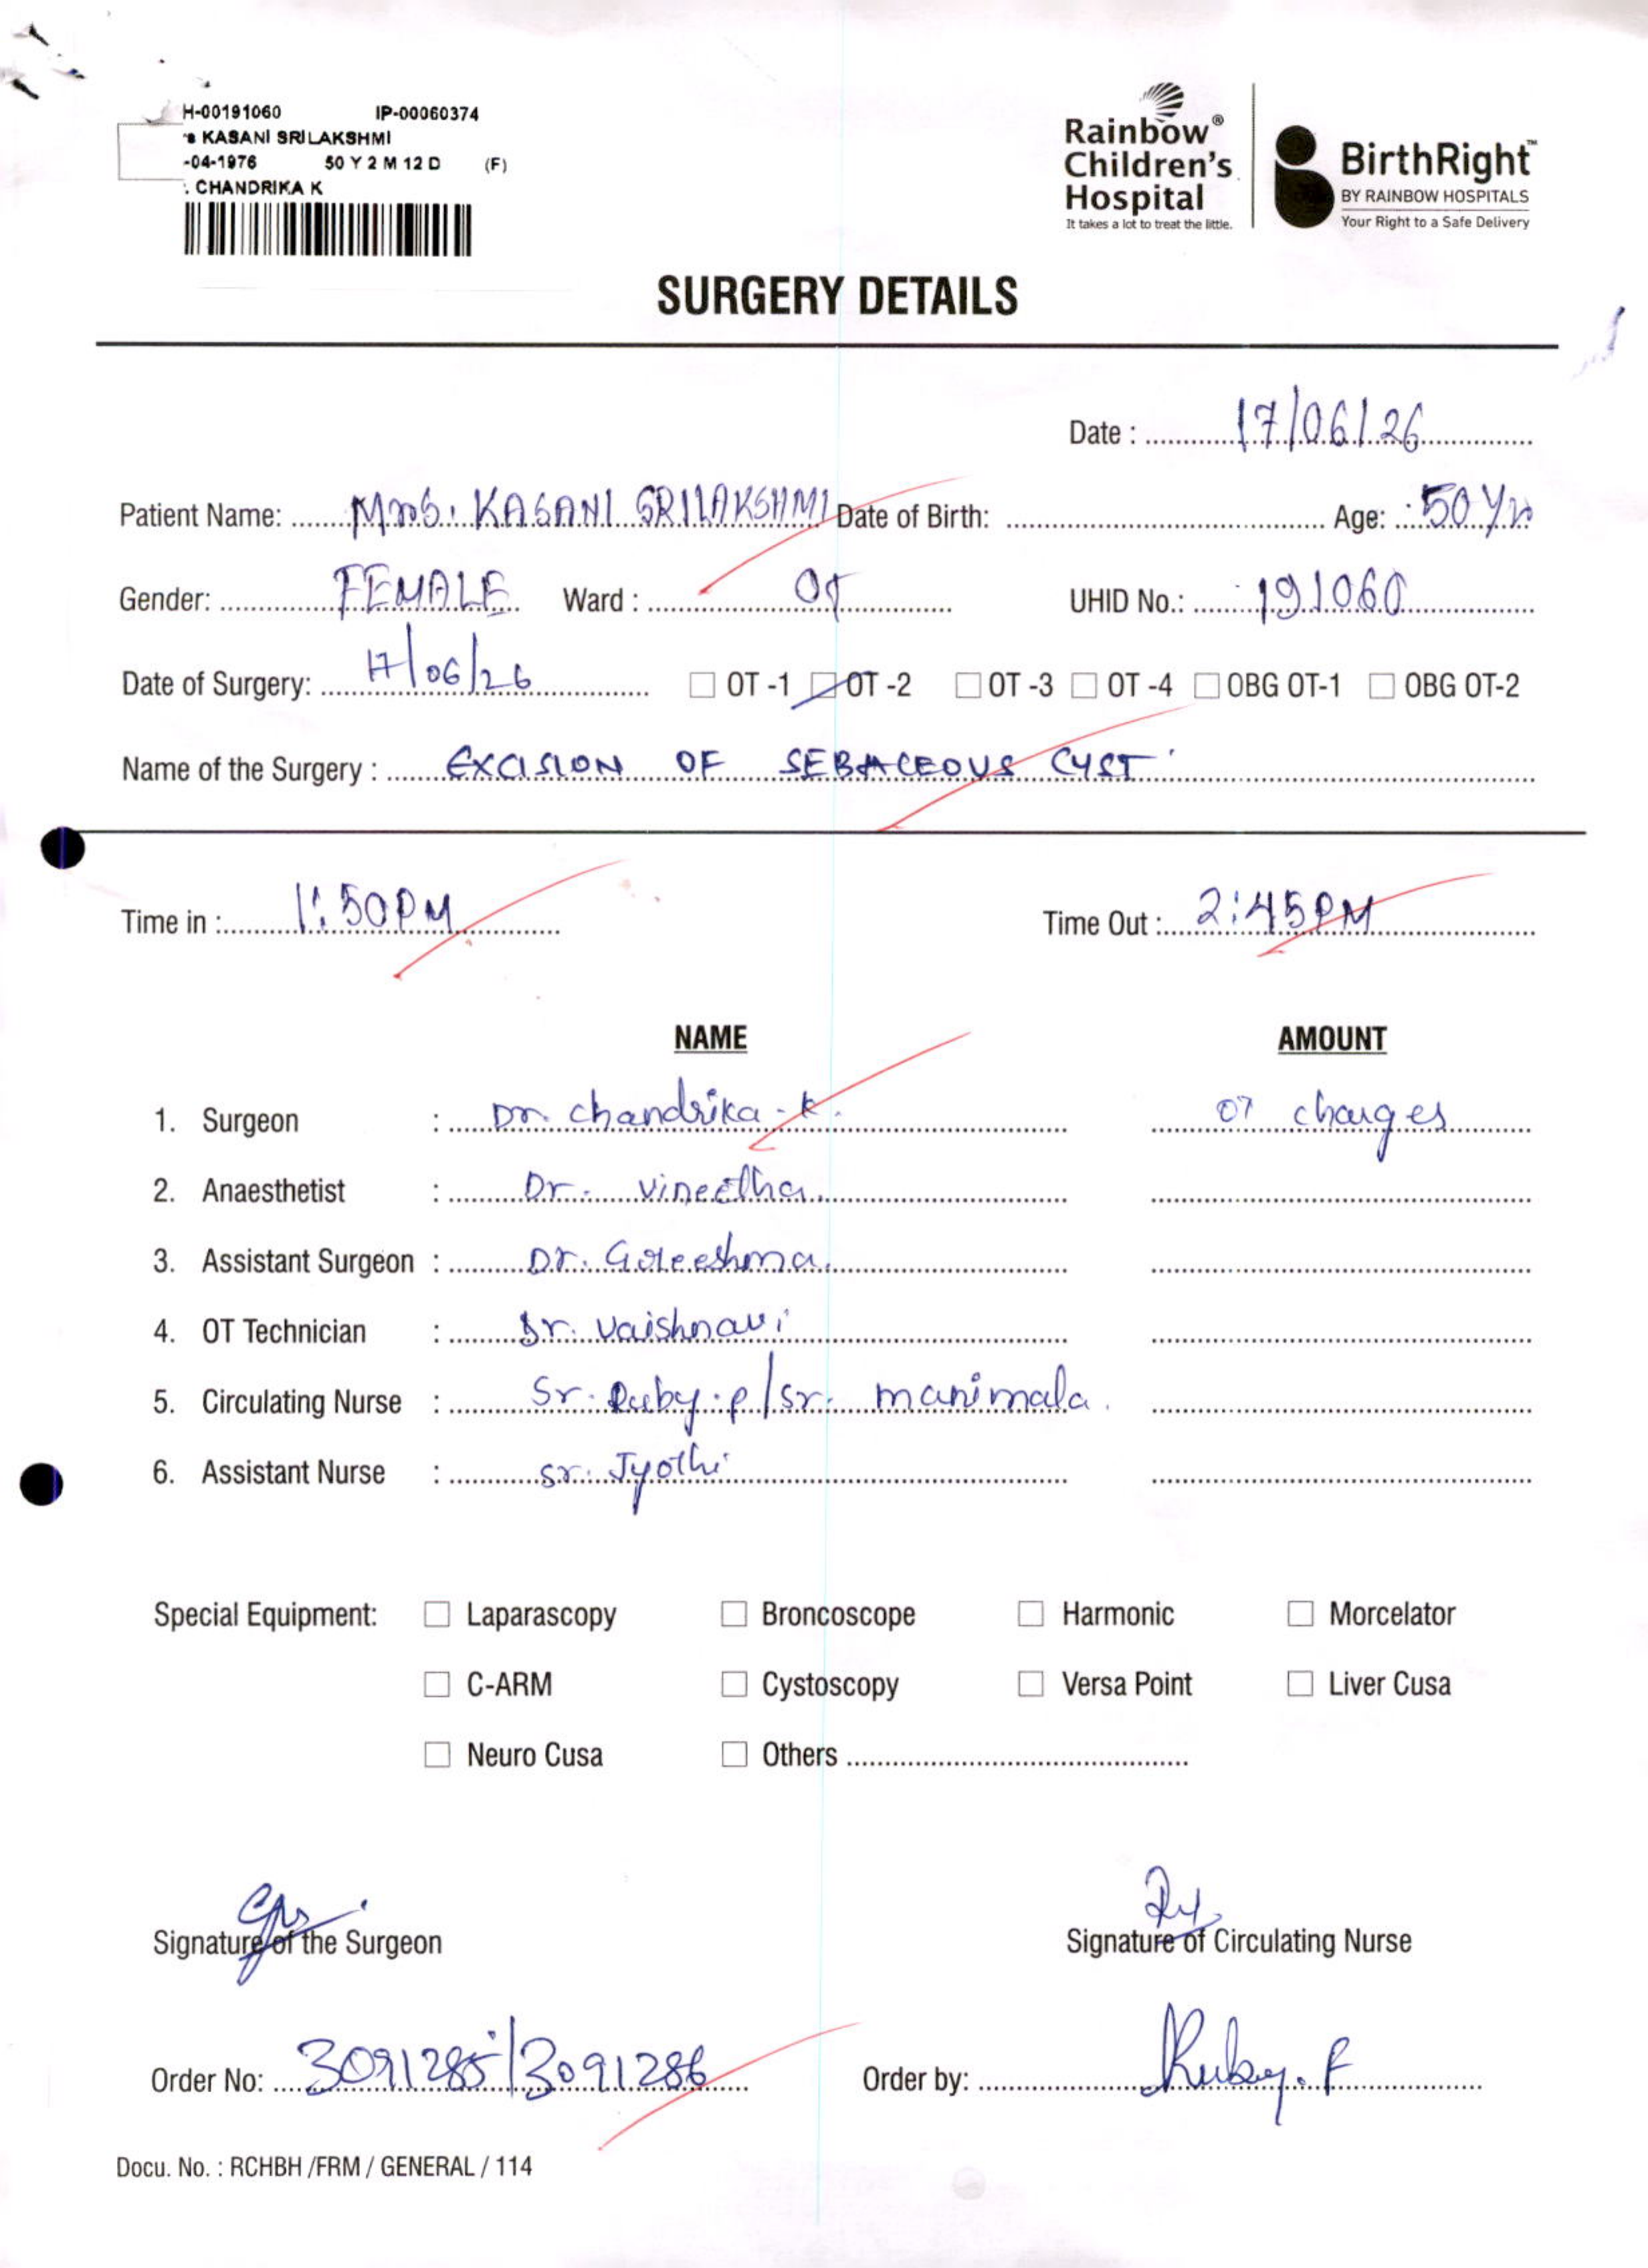 H-00191060 IP-00060374
KASANI SRILAKSHMI
-04-1976 50 Y 2 M 12 D (F)
. CHANDRIKA K
Rainbow®
Children's
Hospital
It takes a lot to treat the little.
BirthRight™
BY RAINBOW HOSPITALS
Your Right to a Safe Delivery
SURGERY DETAILS
Date : 17/06/26
Patient Name: Mrs. KASANI SRILAKSHMI Date of Birth: Age: 50 Yr
Gender: FEMALE Ward : OT UHID No.: 191060
Date of Surgery: 17/06/26 OT -1 OT -2 OT -3 OT -4 OBG OT-1 OBG OT-2
Name of the Surgery : EXCISION OF SEBACEOUS CYST
Time in : 1:50PM Time Out : 2:45PM
NAME AMOUNT
1. Surgeon : Dr. Chandrika - K. OT charges
2. Anaesthetist : Dr. Vineetha
3. Assistant Surgeon : Dr. Greeshma
4. OT Technician : Sr. Vaishnavi
5. Circulating Nurse : Sr. Ruby.P/Sr. manimala.
6. Assistant Nurse : Sr. Jyothi
Special Equipment: Laparascopy Broncoscope Harmonic Morcelator
C-ARM Cystoscopy Versa Point Liver Cusa
Neuro Cusa Others
Signature of the Surgeon Signature of Circulating Nurse
Order No: 3091285/3091286 Order by: Ruby. P
Docu. No. : RCHBH /FRM / GENERAL / 114